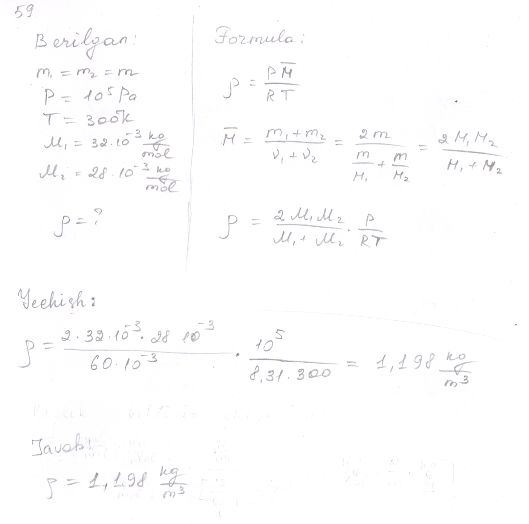 59
Berilgan:
m₁ = m₂ = m
P = 10⁵ Pa
T = 300K
M₁ = 32·10⁻³ kg/mol
M₂ = 28·10⁻³ kg/mol
ρ = ?
Formula:
ρ = PM̅/RT
M̅ = (m₁ + m₂)/(ν₁ + ν₂) = 2m/(m/M₁ + m/M₂) = 2M₁M₂/(M₁ + M₂)
ρ = 2M₁M₂/(M₁ + M₂) · P/RT
Yechish:
ρ = (2·32·10⁻³·28 10⁻³)/(60·10⁻³) · 10⁵/(8,31·300) = 1,198 kg/m³
Javob:
ρ = 1,198 kg/m³